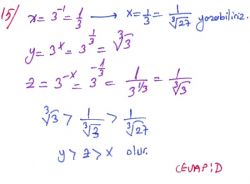 15/ x = 3⁻¹ = 1/3 → x = 1/3 = 1/∛27 yazabiliriz.
y = 3ˣ = 3^(1/3) = ∛3
z = 3⁻ˣ = 3^(-1/3) = 1/3^(1/3) = 1/∛3
∛3 > 1/∛3 > 1/∛27
y > z > x olur.
CEVAP D